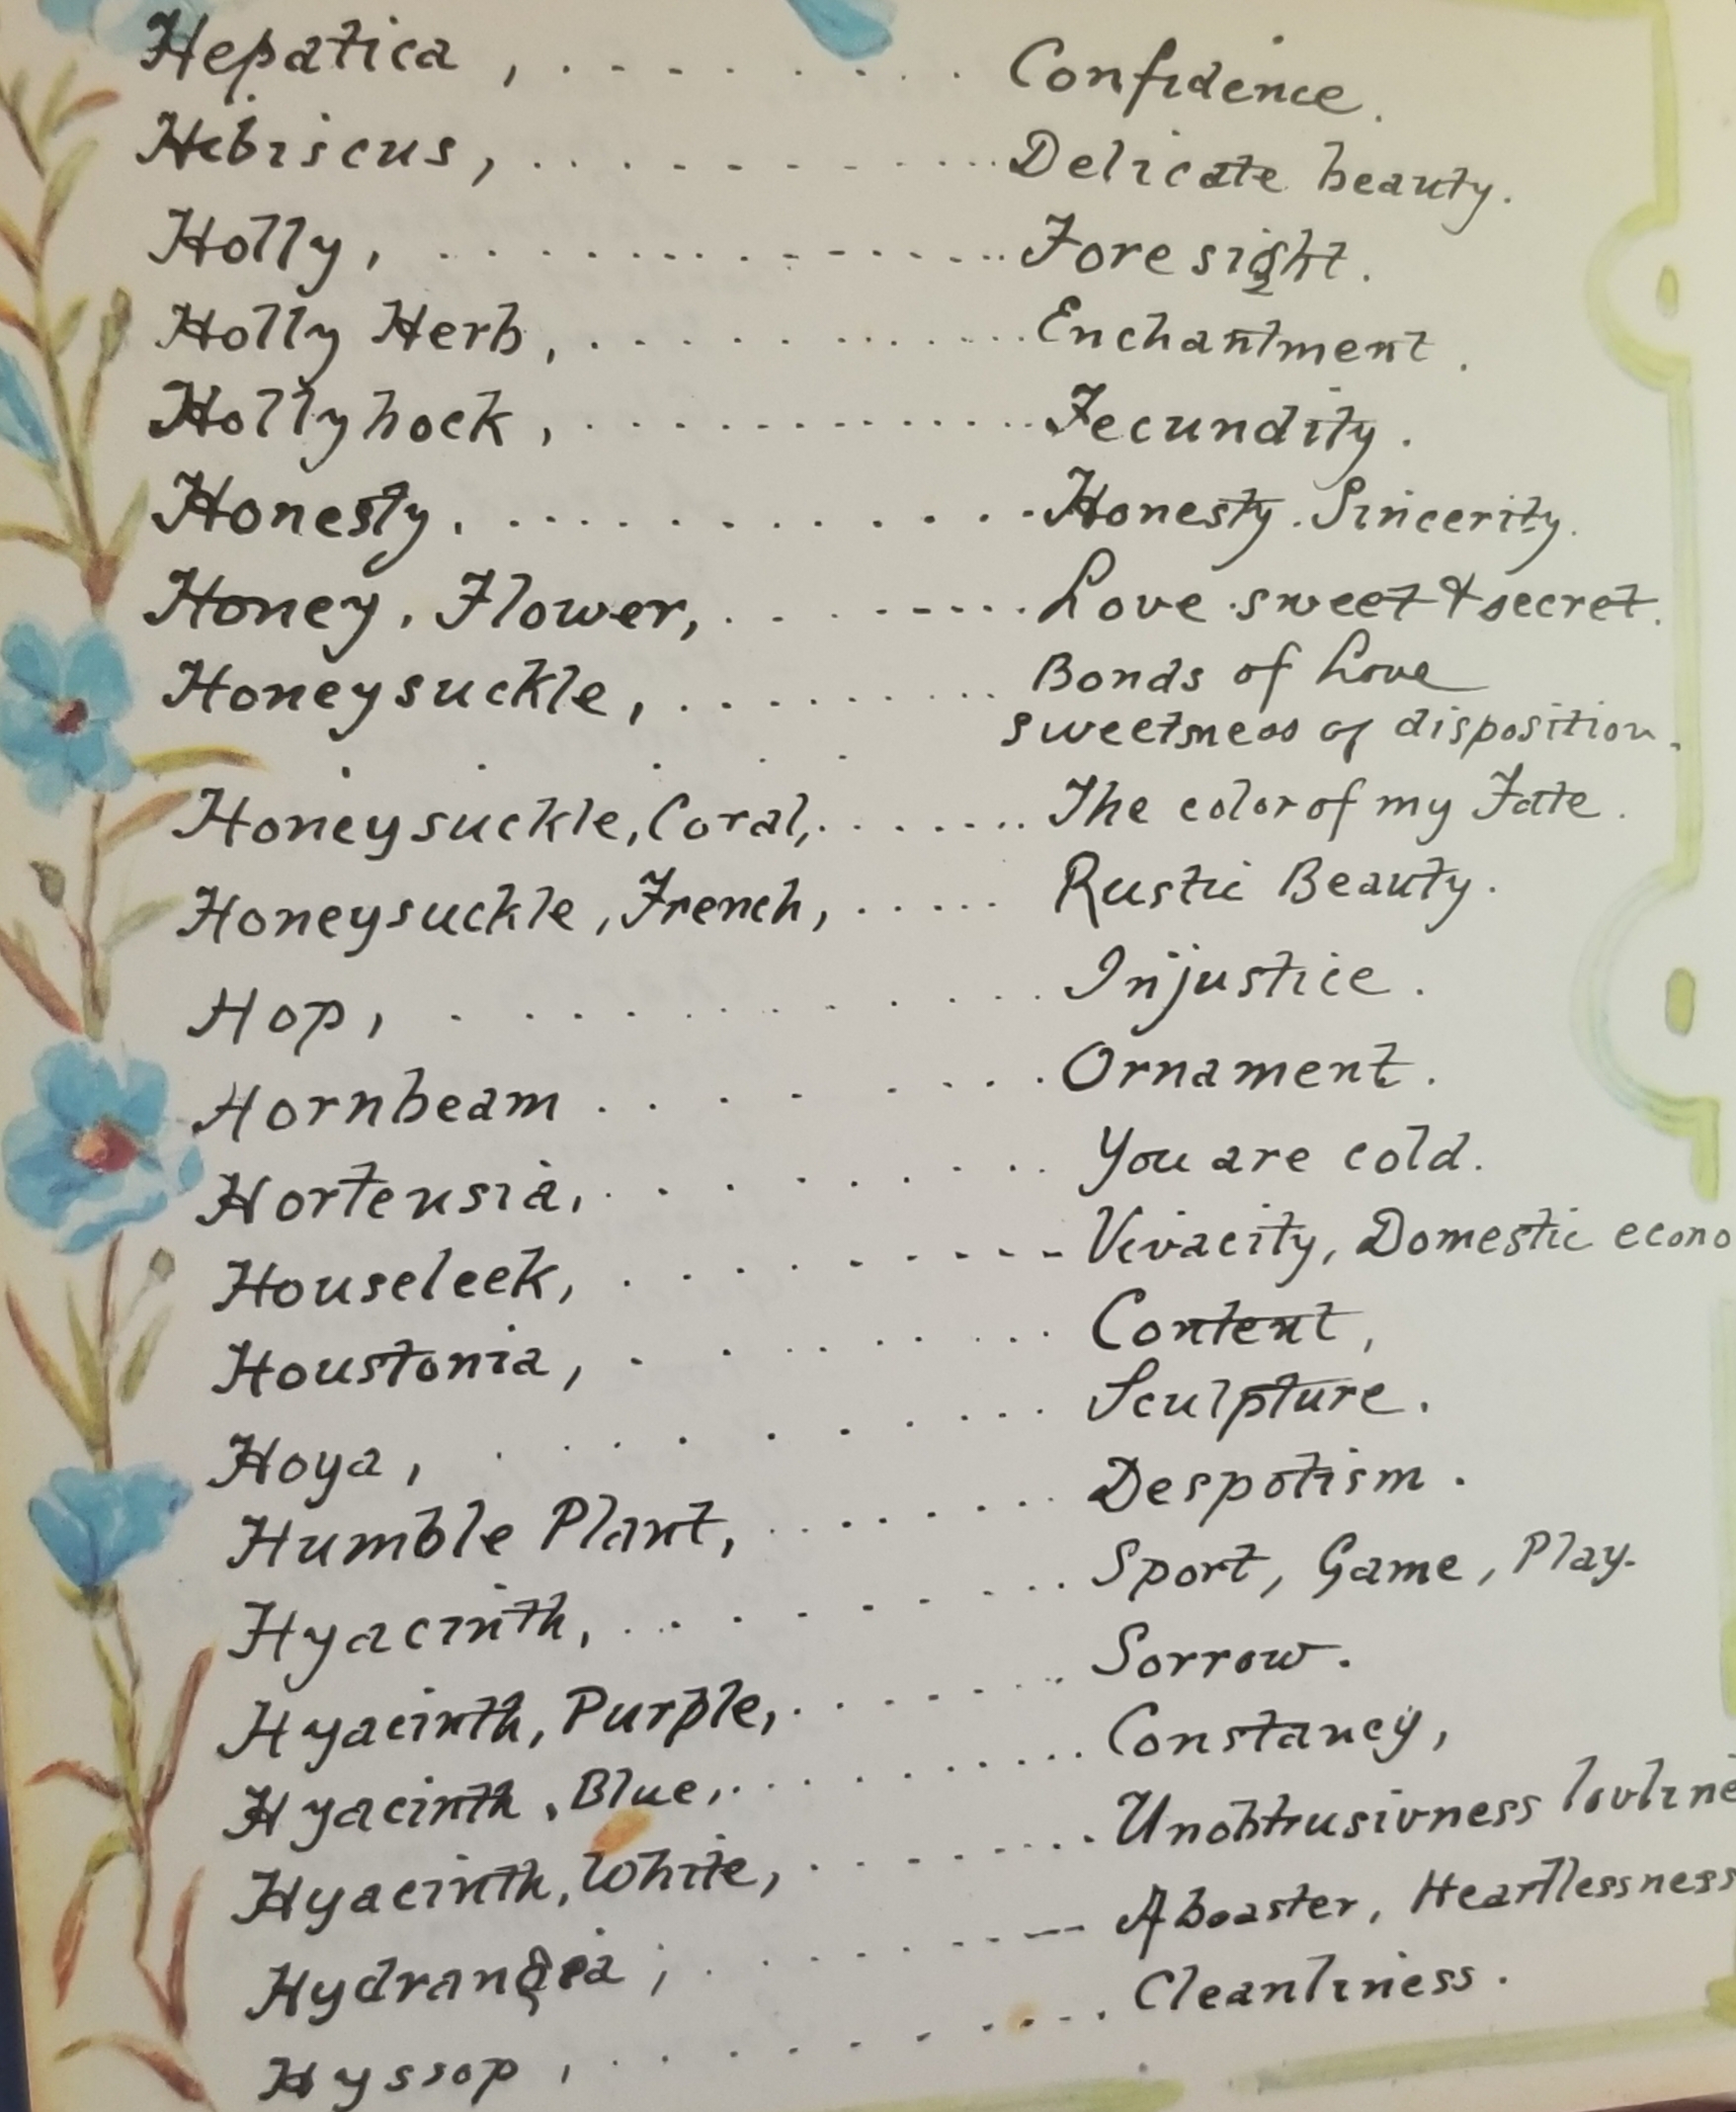 Hepatica , . . . . . . . . . Confidence.
Hibiscus, . . . . . . . . . . . Delicate beauty.
Holly, . . . . . . . . . . . . . Foresight.
Holly Herb, . . . . . . . . . . . Enchantment.
Hollyhock, . . . . . . . . . . . . Fecundity.
Honesty. . . . . . . . . . . . . Honesty. Sincerity.
Honey, Flower, . . . . . . . . Love sweet & secret.
Honeysuckle, . . . . . . . . . Bonds of Love
sweetness of disposition.
Honeysuckle, Coral, . . . . . . . The color of my Fate.
Honeysuckle, French, . . . . . Rustic Beauty.
Hop, . . . . . . . . . . Injustice.
Hornbeam . . . . . . . . Ornament.
Hortensia, . . . . . . . . . You are cold.
Houseleek, . . . . . . . . . Vivacity, Domestic econo
Houstonia, . . . . . . . . Content,
Hoya, . . . . . . . . . . Sculpture.
Humble Plant, . . . . . . . . Despotism.
Hyacinth, . . . . . . . . . . Sport, Game, Play.
Hyacinth, Purple, . . . . . . . . Sorrow.
Hyacinth, Blue, . . . . . . . . . Constancy,
Hyacinth, White, . . . . . . . . Unobtrusivness lovline
Hydrangea, . . . . . . . . Aboaster, Heartlessness
Hyssop, . . . . . . . . . . Cleanliness.